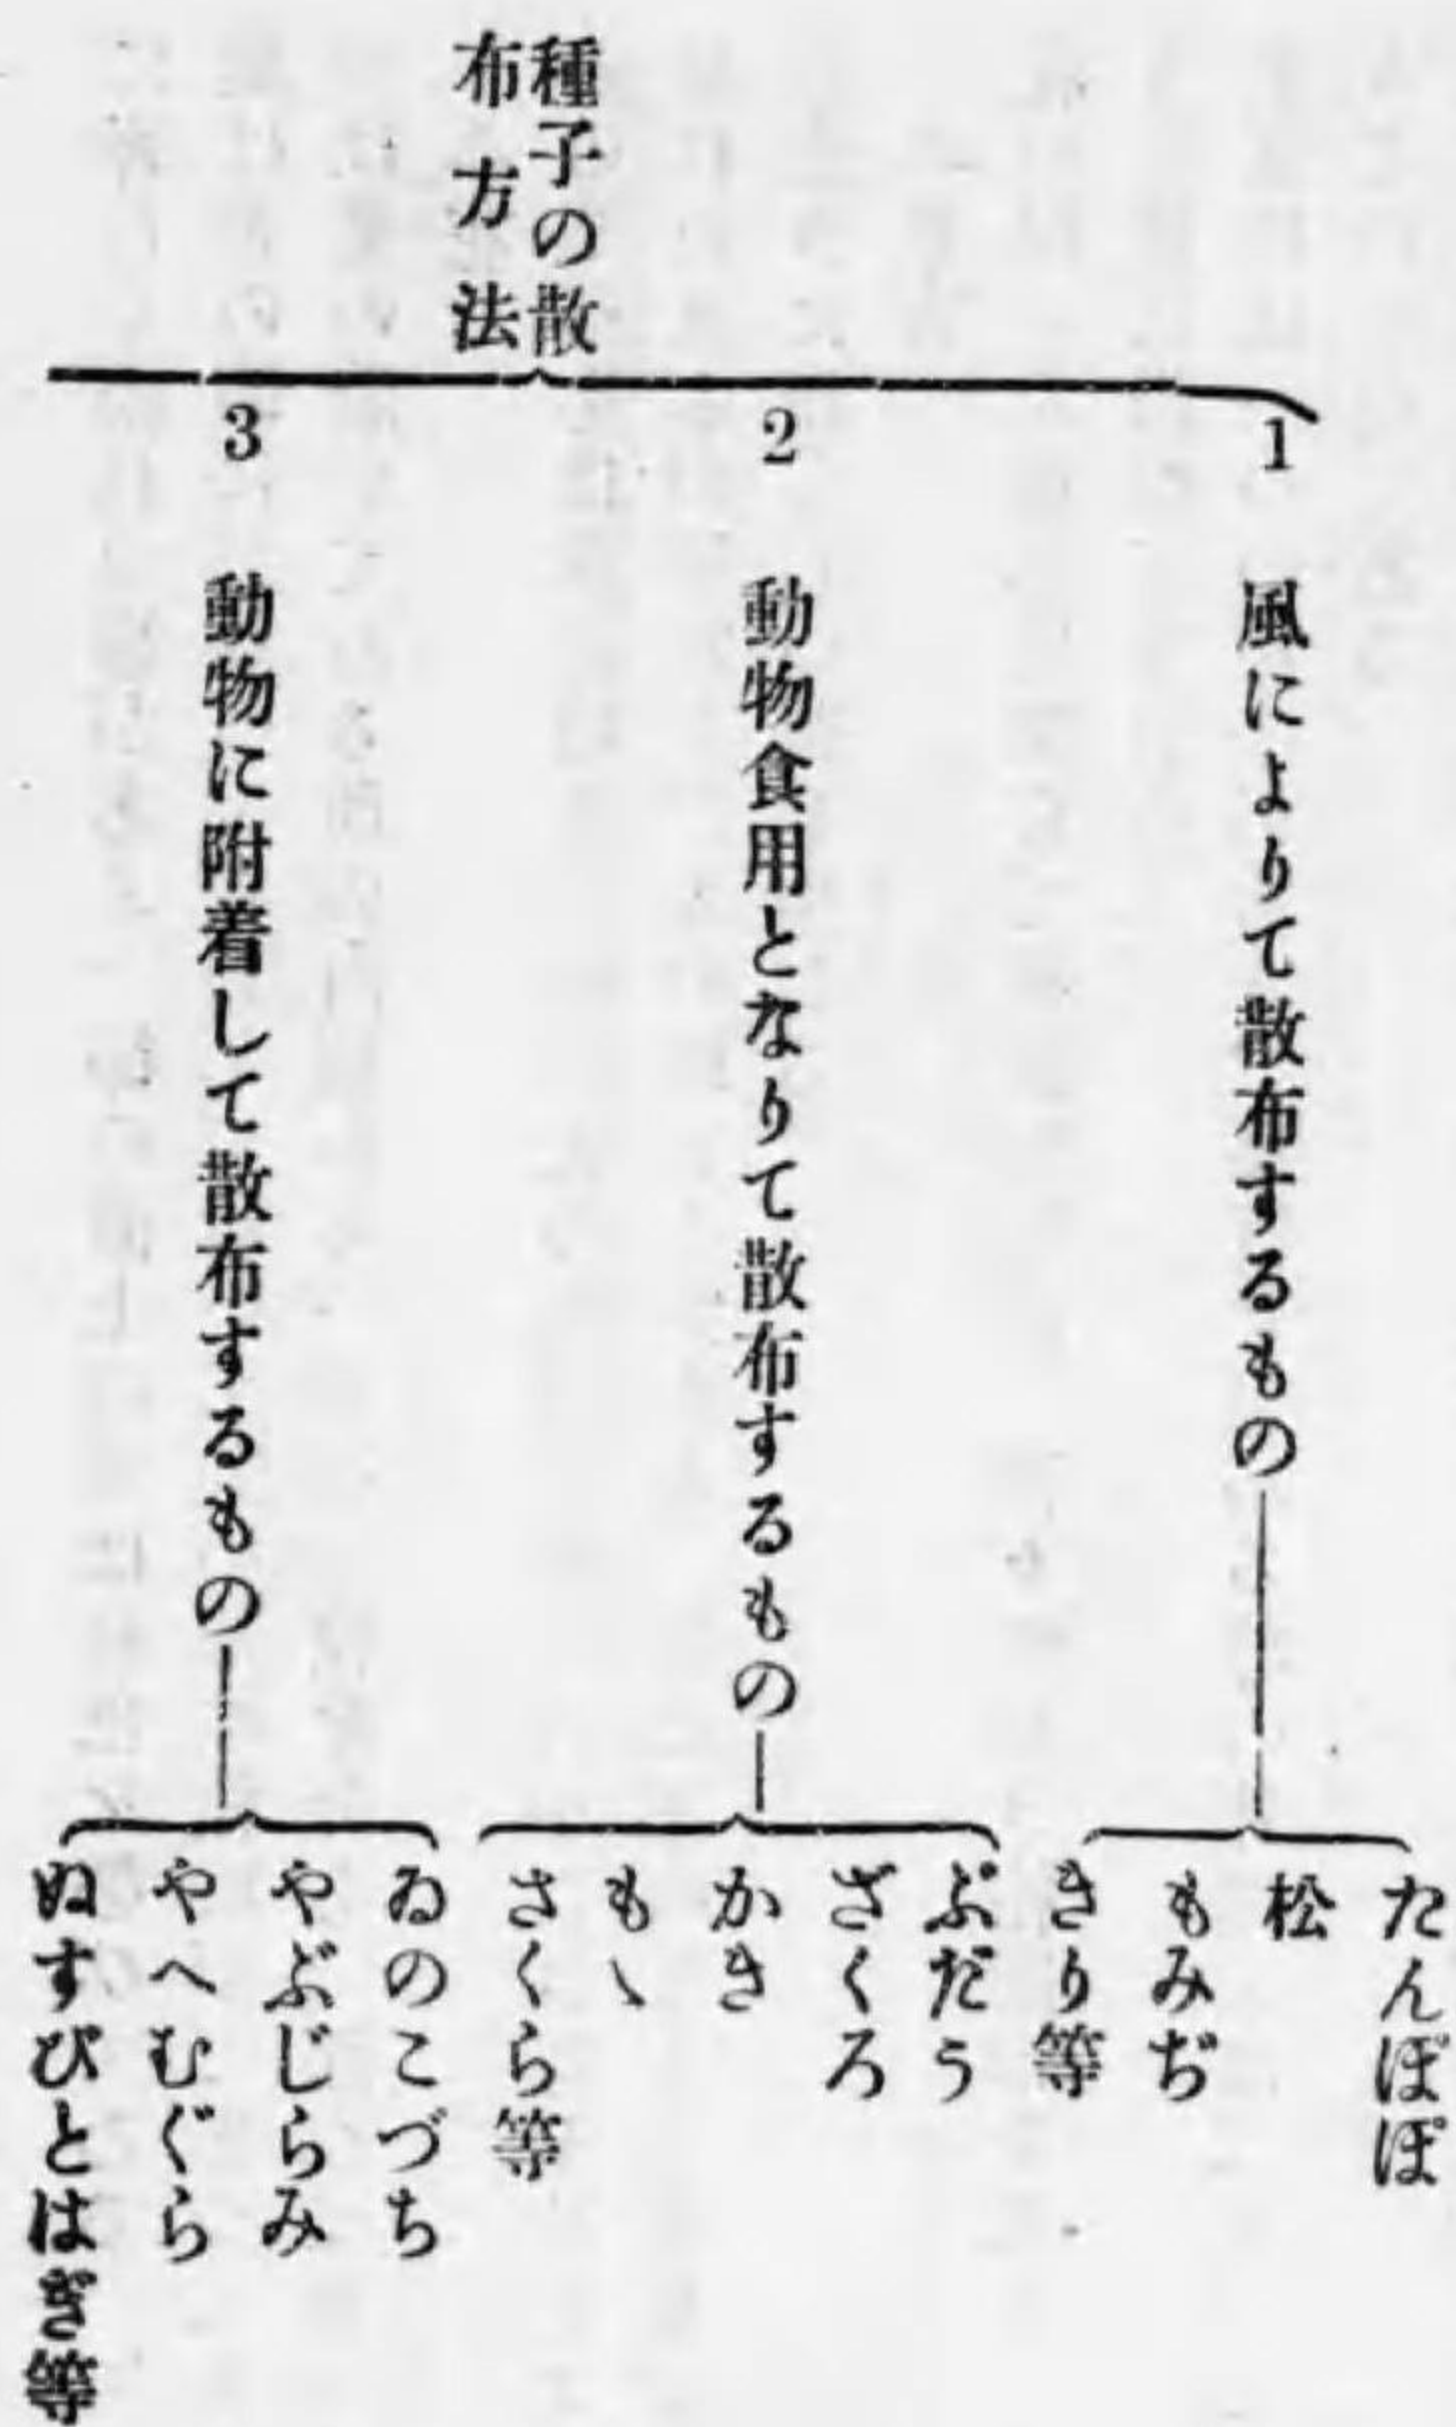 種子の散
布方法
1 風によりて散布するもの
たんぽぽ
松
もみぢ
きり等
2 動物食用となりて散布するもの
ぶだう
ざくろ
かき
もゝ
さくら等
3 動物に附着して散布するもの
ゐのこづち
やぶじらみ
やへむぐら
ぬすびとはぎ等